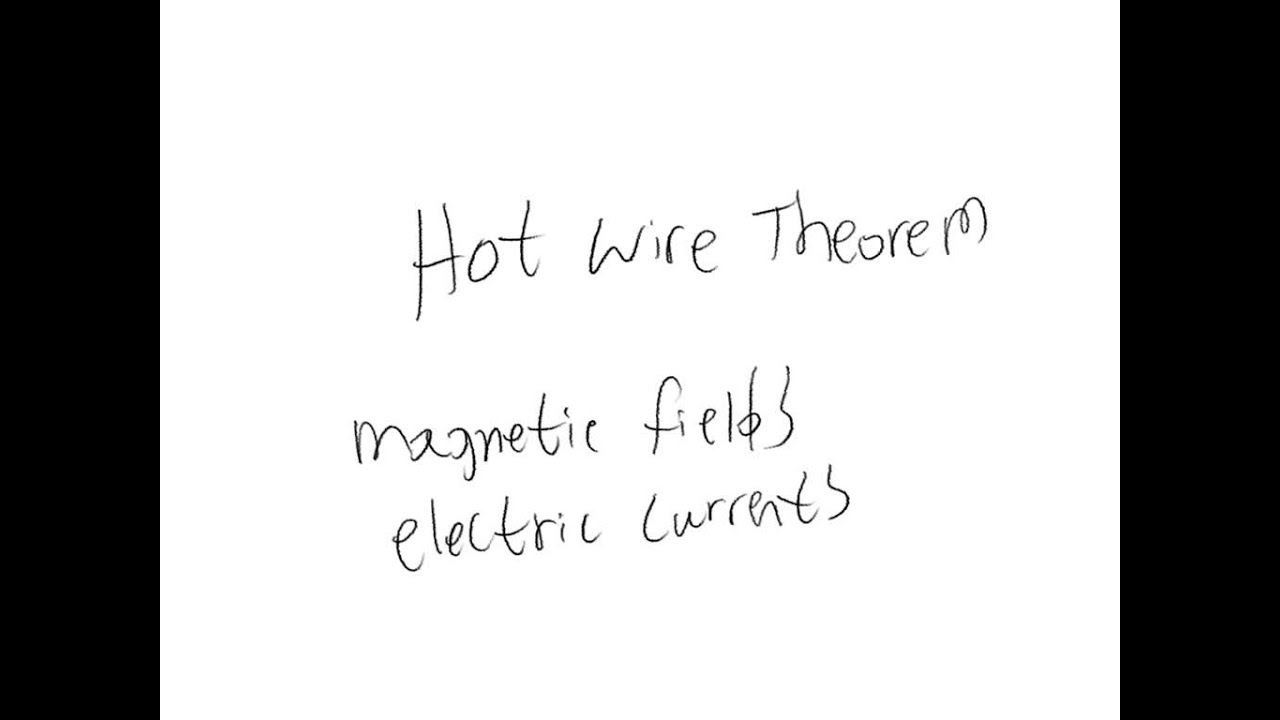 Hot Wire Theorem
magnetic fields
electric currents